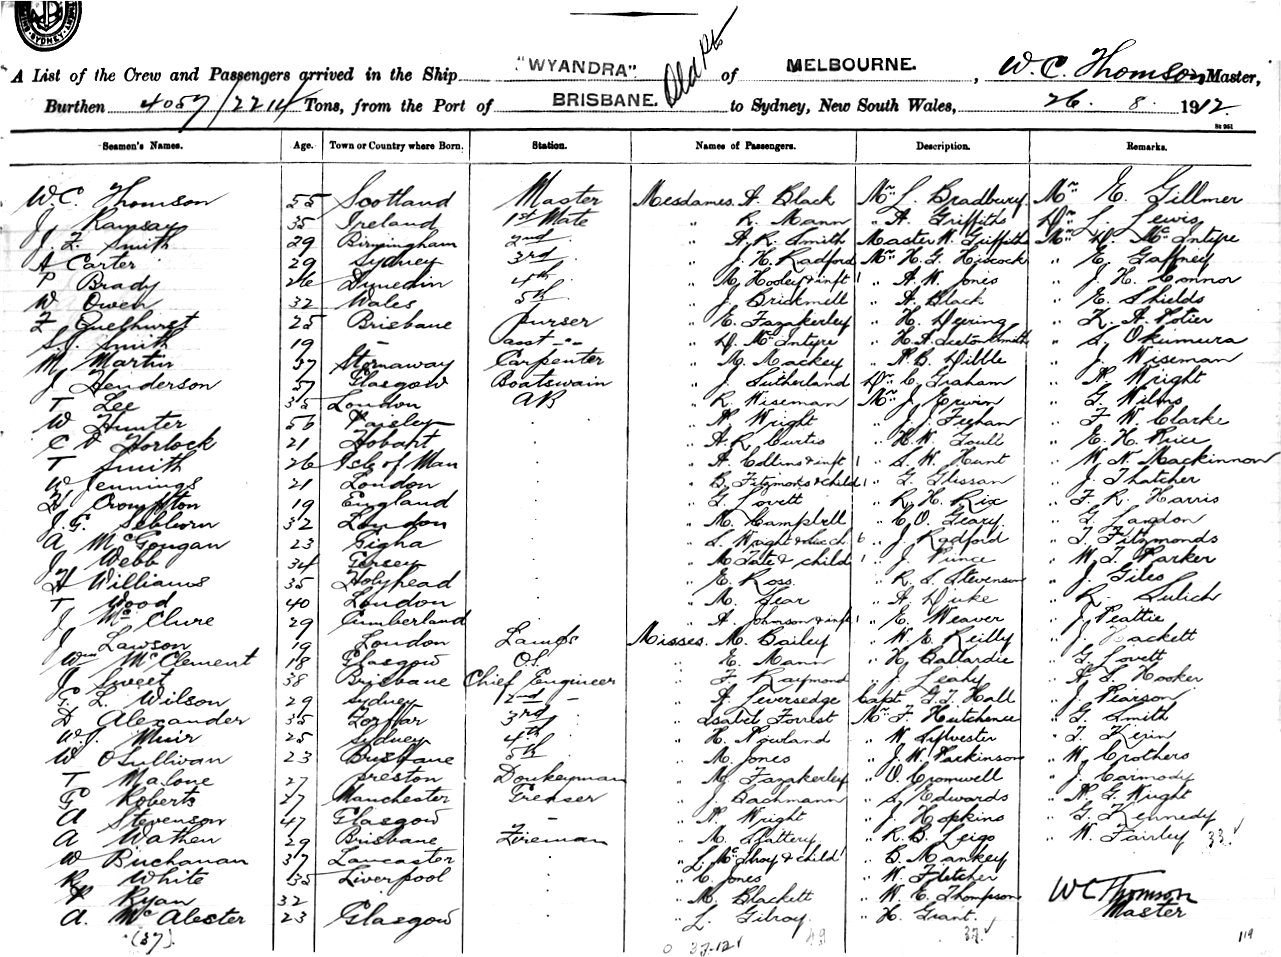 SYDNEY
A List of the Crew and Passengers arrived in the Ship "WYANDRA" of MELBOURNE. , W. C. Thomson, Master,
Burthen 4057/2214 Tons, from the Port of BRISBANE. to Sydney, New South Wales, 26. 8. 1912.
St 951
Seamen's Names. Age. Town or Country where Born. Station. Names of Passengers. Description. Remarks.
W. C. Thomson 55 Scotland Master Mesdames A. Black Mr L. Bradbury Mr E. Gillmer
J. Ramsay 35 Ireland 1st Mate " R. Mann " A. Griffiths Dr L. Lewis
J. Z. Smith 29 Birmingham 2nd " A. R. Smith Master W. Griffiths Mr D. McIntyre
A Carter 29 Sydney 3rd " J. H. Radford Mr H. G. Hiscock " E. Gaffney
P Brady 26 Dunedin 4th " M. Hooley & inft 1 " A. W. Jones " J. H. Connor
W Owen 32 Wales 5th " J. Bricknell " A. Black " E. Shields
25 Brisbane Purser " E. Fazakerley " H. Dyring " K. A. Potier
S. J. Smith 19 - asst -"- " D. McIntyre " S. Okumura
M. Martin 37 Stornaway Carpenter " M. Mackey " A. B. Dibble " J. Wiseman
J. Henderson 57 Glasgow Boatswain " J. Sutherland Dr C. Graham " A. Wright
T Lee 35 London AB " R. Wiseman Mr J. Erwin " G. Wilms
W Hunter 56 Paisley " A. Wright " J. Feghan " F. W. Clarke
C V Horlock 21 Hobart " A. R. Curtis " H. W. Goull " E. H. Rice
T Smith 26 Isle of Man " A. Collins & inft 1 " S. W. Hunt " W. N. Mackinnon
W Jennings 21 London " B. Fitzmonds & child 1 " G. Glissan " J. Thatcher
H Crompton 19 England " G. Lovett " R. H. Rix " F. R. Harris
J. G. Seaborn 32 London " M. Campbell " C. O. Geary " G. Langdon
A McGougan 23 Gigha " S. Wright 6 " J. Radford " T. Fitzmonds
J Webb 34 Jersey " M. Tate & child 1 " J. Prince " W. J. Parker
H Williams 35 Holyhead " E. Ross " R. S. Stevenson " J. Giles
T Wood 40 London " M. Sear " A. Duke " R. Sulich
J. McClure 29 Cumberland " A. Johnson & inft 1 " E. Weaver " J. Beattie
J Lawson 19 London Lamps Misses. M. Bailey " W. E. Reilly " J. Hackett
Wm McClement 18 Glasgow O.S. " E. Mann " H. Ballardie " G. Lovett
J Sweet 38 Brisbane Chief Engineer " F. Raymond " J. Leahy " A. S. Hooker
G. L. Wilson 29 Sydney 2nd - " A. Liversedge Capt. G. T. Hall " J. Pearson
D. Alexander 35 Forfar 3rd " Isabel Forrest Mr F. Hutchence " G. Smith
W. J. Muir 25 Sydney 4th " H. Rowland " W. Sylvester " T. Kerin
W OSullivan 23 Brisbane 5th " M. Jones " J. W. Parkinson " W. Crothers
T Malone 27 Preston Donkeyman " M. Fazakerley " O. Cromwell " J. Carmody
G Roberts 47 Manchester Greaser " J. Bachmann " S. Edwards " A. G. Wright
A Stevenson 47 Glasgow - " A. Wright " J. Hopkins " G. Kennedy
A Wathen 29 Brisbane Fireman " M. Slattery " R. B. Leigo " W. Fairley 33
W Buchanan 37 Lancaster " L. McIlroy & child 1 " B. Mankey
R White 35 Liverpool " C. Jones " W. Fletcher
P Ryan 32 " M. Blackett " W. E. Thompson WC Thomson
A. McAlester 23 Glasgow " L. Gilroy " H. Grant. Master
(37) 0 37.12 49 37 119